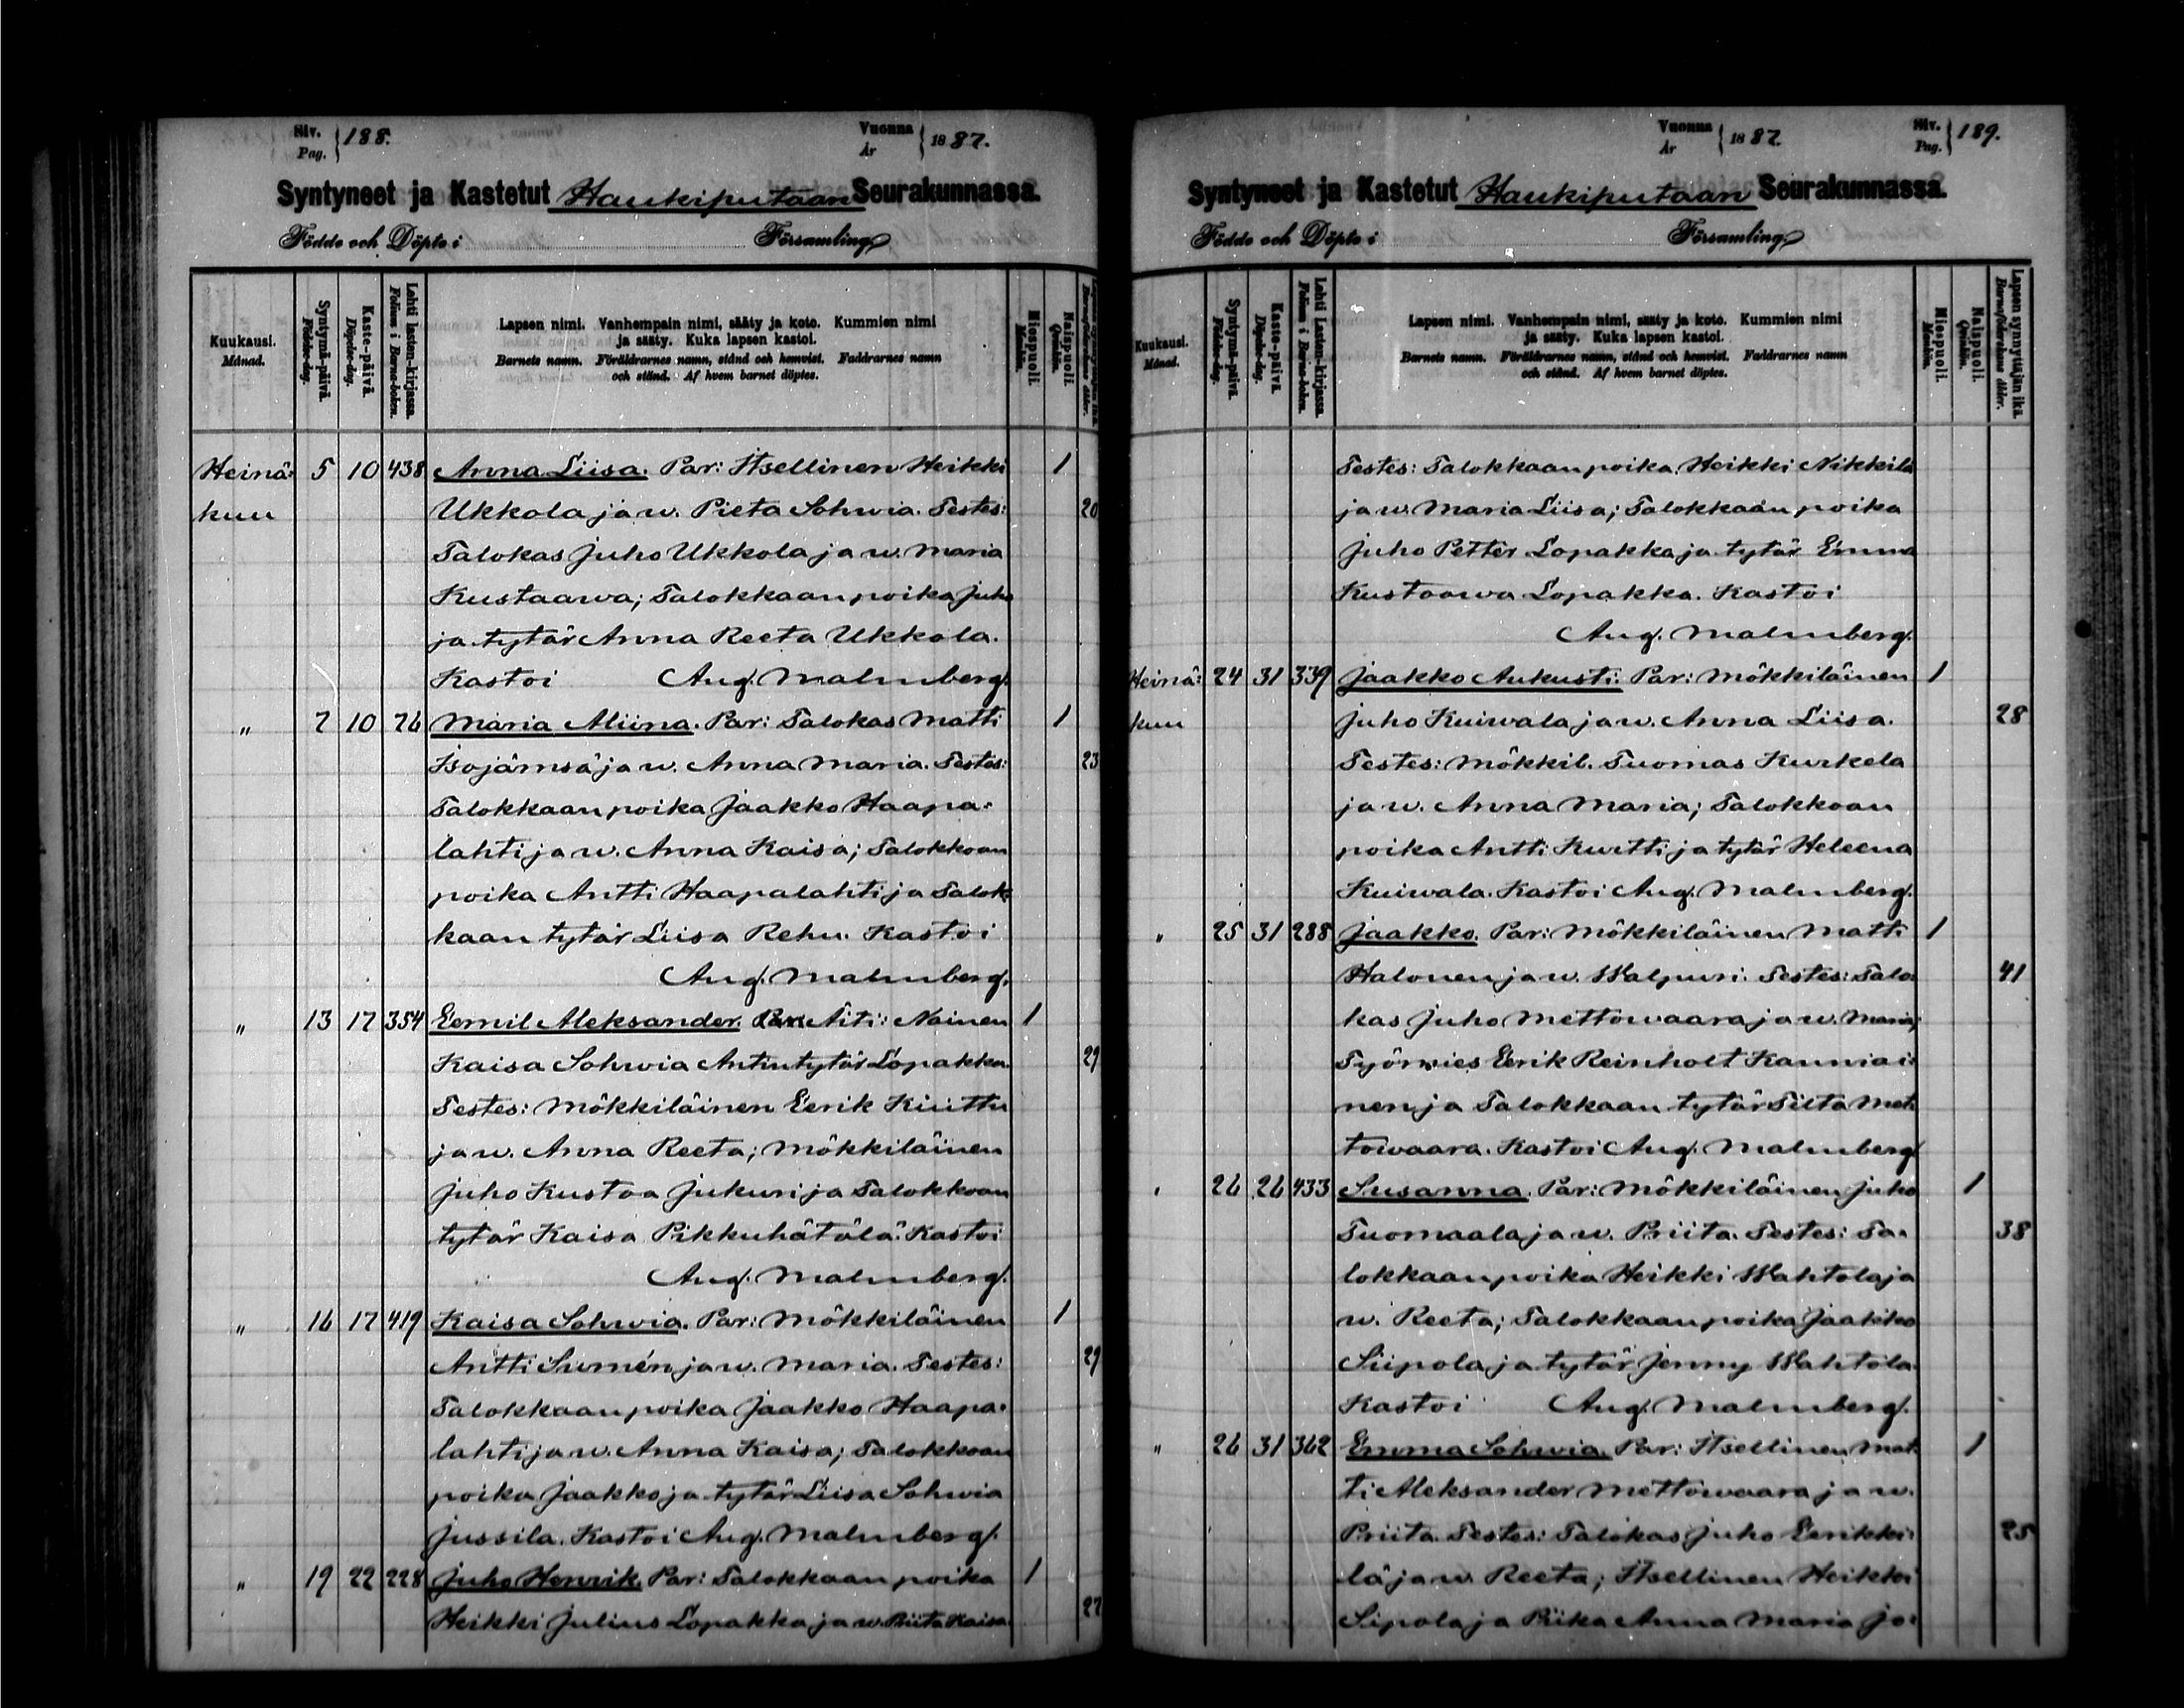 Siv.
Pag. } 188.
Vuonna
År } 1887.
Syntyneet ja Kastetut Haukiputaan Seurakunnassa.
Födde och Döpte i Församling
Kuukausi.
Månad.
Syntymä-päivä.
Födelse-dag.
Kaste-päivä.
Döpelse-dag.
Lehti lasten-kirjassa.
Folium i Barna-boken.
Lapsen nimi. Vanhempain nimi, sääty ja koto. Kummien nimi
ja sääty. Kuka lapsen kastoi.
Barnets namn. Föräldrarnes namn, stånd och hemvist. Faddrarnes namn
och stånd. Af hvem barnet döptes.
Miespuoli.
Mankön.
Naispuoli.
Qvinkön.
Heinä- 5 10 438 Anna Liisa. Par: Itsellinen Heikki 1
kuu Ukkola ja w. Pieta Sohwia. Testes: 20
Talokas Juho Ukkola ja w. Maria
Kustaawa; Talokkaan poika Juho
ja tytär Anna Reeta Ukkola.
Kastoi Aug. Malmberg.
" 7 10 76 Maria Aliina. Par: Talokas Matti 1
Isojämsä ja w. Anna Maria. Testes: 23
Talokkaan poika Jaakko Haapa-
lahti ja w. Anna Kaisa; Talokkaan
poika Antti Haapalahti ja Talok-
kaan tytär Liisa Rehu. Kastoi
Aug. Malmberg.
" 13 17 354 Eemil Aleksander. Äiti: Nainen 1
Kaisa Sohwia Antintytär Lopakka. 29
Testes: Mökkiläinen Eerik Kiuttu
ja w. Anna Reeta; Mökkiläinen
Juho Kustaa Jukuri ja Talokkaan
tytär Kaisa Pikkuhätälä. Kastoi
Aug. Malmberg.
" 16 17 419 Kaisa Sohwia. Par: Mökkiläinen 1
Antti Sumén ja w. Maria. Testes: 29
Talokkaan poika Jaakko Haapa-
lahti ja w. Anna Kaisa; Talokkaan
poika Jaakko ja tytär Liisa Sohwia
Jussila. Kastoi Aug. Malmberg.
" 19 22 228 Juho Henrik. Par: Talokkaan poika 1
Heikki Julius Lopakka ja w. Priita Kaisa. 27
Vuonna
År } 1887.
Siv.
Pag. } 189.
Syntyneet ja Kastetut Haukiputaan Seurakunnassa.
Födde och Döpte i Församling
Kuukausi.
Månad.
Syntymä-päivä.
Födelse-dag.
Kaste-päivä.
Döpelse-dag.
Lehti lasten-kirjassa.
Folium i Barna-boken.
Lapsen nimi. Vanhempain nimi, sääty ja koto. Kummien nimi
ja sääty. Kuka lapsen kastoi.
Barnets namn. Föräldrarnes namn, stånd och hemvist. Faddrarnes namn
och stånd. Af hvem barnet döptes.
Miespuoli.
Mankön.
Naispuoli.
Qvinkön.
Lapsen synnyttäjän ikä.
Barnaföderskans ålder.
Testes: Talokkaan poika Heikki Nikkilä
ja w. Maria Liisa; Talokkaan poika
Juho Petter Lopakka ja tytär Emma
Kustaawa Lopakka. Kastoi
Aug. Malmberg.
Heinä- 24 31 339 Jaakko Aukusti. Par: Mökkiläinen 1
kuu Juho Kuiwala ja w. Anna Liisa. 28
Testes: Mökkil. Tuomas Kurkela
ja w. Anna Maria; Talokkaan
poika Antti Kurtti ja tytär Heleena
Kuiwala. Kastoi Aug. Malmberg.
" 25 31 288 Jaakko. Par: Mökkiläinen Matti 1
Halonen ja w. Walpuri. Testes: Talo- 41
kas Juho Mettowaara ja w. Maria;
Työmies Eerik Reinholt Kanniai-
nen ja Talokkaan tytär Met-
towaara. Kastoi Aug. Malmberg
" 26 26 433 Susanna. Par: Mökkiläinen Juho 1
Tuomaala ja w. Priita. Testes: Ta- 38
lokkaan poika Heikki Wahtola ja
w. Reeta; Talokkaan poika Jaakko
Siipola ja tytär Jenny Wahtola.
Kastoi Aug. Malmberg.
" 26 31 362 Emma Sohwia. Par: Itsellinen Mat- 1
ti Aleksander Mettowaara ja w.
Priita. Testes: Talokas Juho Eerikki- 25
lä ja w. Reeta; Itsellinen Heikki
Sipola ja Piika Anna Maria Jo-